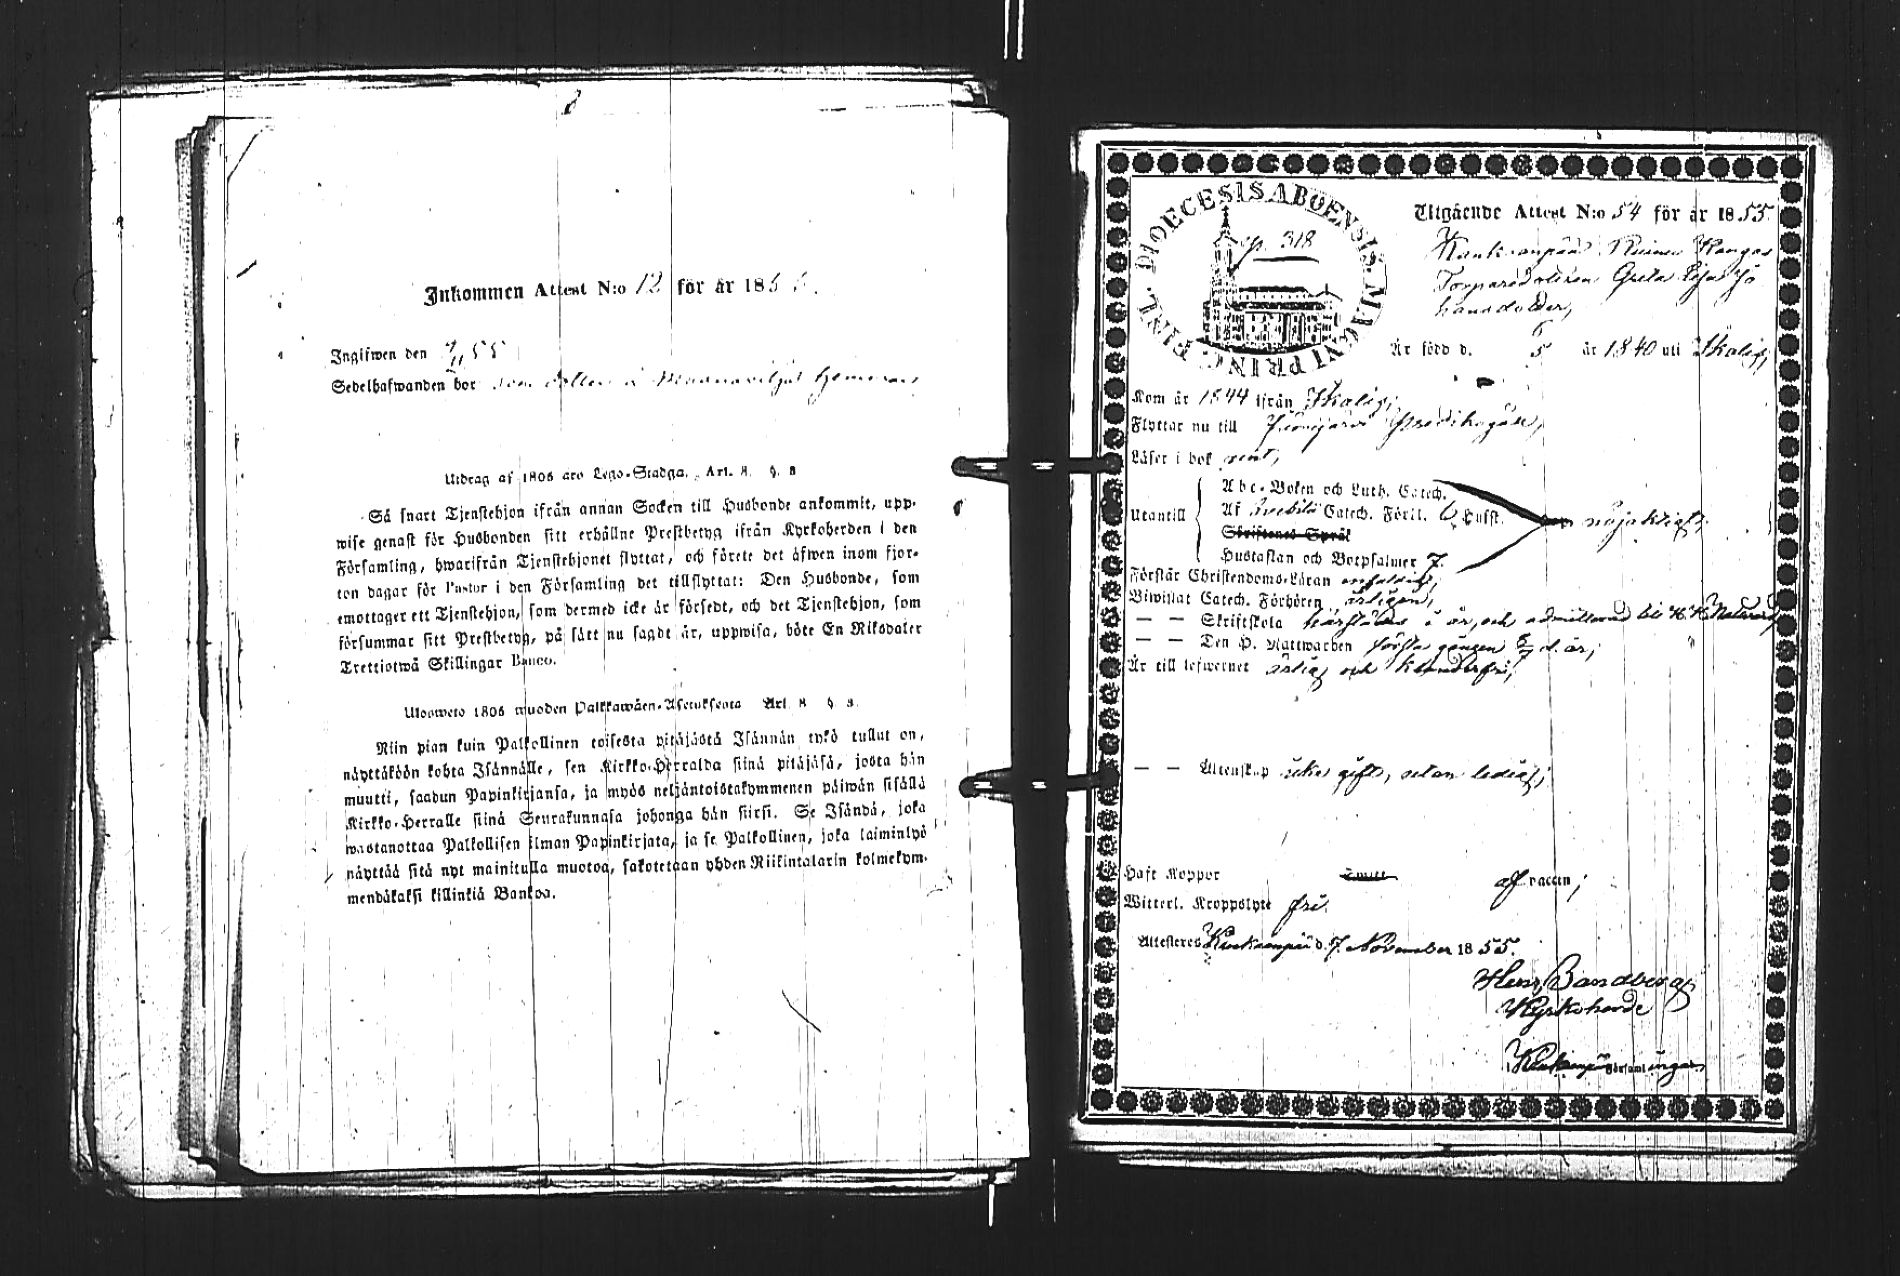 Inkommen Attest N:o 12 för år 185
Ingifwen den 9/11 55
Sedelhafwanden bor som
Utdrag af 1805 års Lego-Stadga. Art. 8. §. 8
Så snart Tjenstehjon ifrån annan Socken till Husbonde ankommit, upp-
wise genast för Husbonden sitt erhållne Prestbetyg ifrån Kyrkoherden i den
Församling, hwarifrån Tjenstehjonet flyttat, och förete det äfwen inom fjor-
ton dagar för Pastor i den Församling det tillflyttat: Den Husbonde, som
emottager ett Tjenstehjon, som dermed icke är försedt, och det Tjenstehjon, som
försummar sitt Prestbetyg, på sätt nu sagdt är, uppwisa, böte En Riksdaler
Trettiotwå Skillingar Banco.
Ulosweto 1805 wuoden Palkkawäen-Asetuksesta Art. 8 §. 8.
Niin pian kuin Palkollinen toisesta pitäjästä Isännän tykö tullut on,
näyttäköön kohta Isännälle, sen Kirkko-Herralda siinä pitäjäsä, josta hän
muutti, saadun Papinkirjansa, ja myös neljäntoistakymmenen päiwän sisällä
Kirkko-Herralle siinä Seurakunnasa johonga hän siirsi. Se Isändä, joka
wastanottaa Palkollisen ilman Papinkirjata, ja se Palkollinen, joka laiminlyö
näyttää sitä nyt mainitulla muotoa, sakotetaan yhden Riikintalarin kolmekym-
mendäkaksi killinkiä Bankoa.
DIOECESIS ABOENSIS. MAGNI PRINC. FINL.
p. 318
Utgående Attest N:o 54 för år 1855.
Kankaanpää Kangas
Greta Lisa Jo
hansdotter,
Är född d. 5 år 1840 uti Ikalis,
Kom år 1844 ifrån Ikalis,
Flyttar nu till
Läser i bok rent,
Utantill
Abc-Boken och Luth. Catech.
Af Swebilii Catech. Förkl. 6. Hufst.
Skriftenes Språk
Hustaflan och Botpsalmer 7.
nöjaktigt;
Förstår Christendoms-Läran enfaldigt,
Biwistat Catech. Förhören årligen,
— — Skriftskola i år, och admitterad till H. H. Nattvard,
— — Den H. Nattwarden första gången d. år;
Är till lefwernet ärlig och klanderfri,
— — Äktenskap icke gift, utan ledig;
Haft Koppor af vaccin;
Witterl. Kroppslyte fri.
Attesteres Kankaanpää d. 7. November 1855.
Henr. Sandberg
Kyrkoherde
Kankaanpää Församlingar